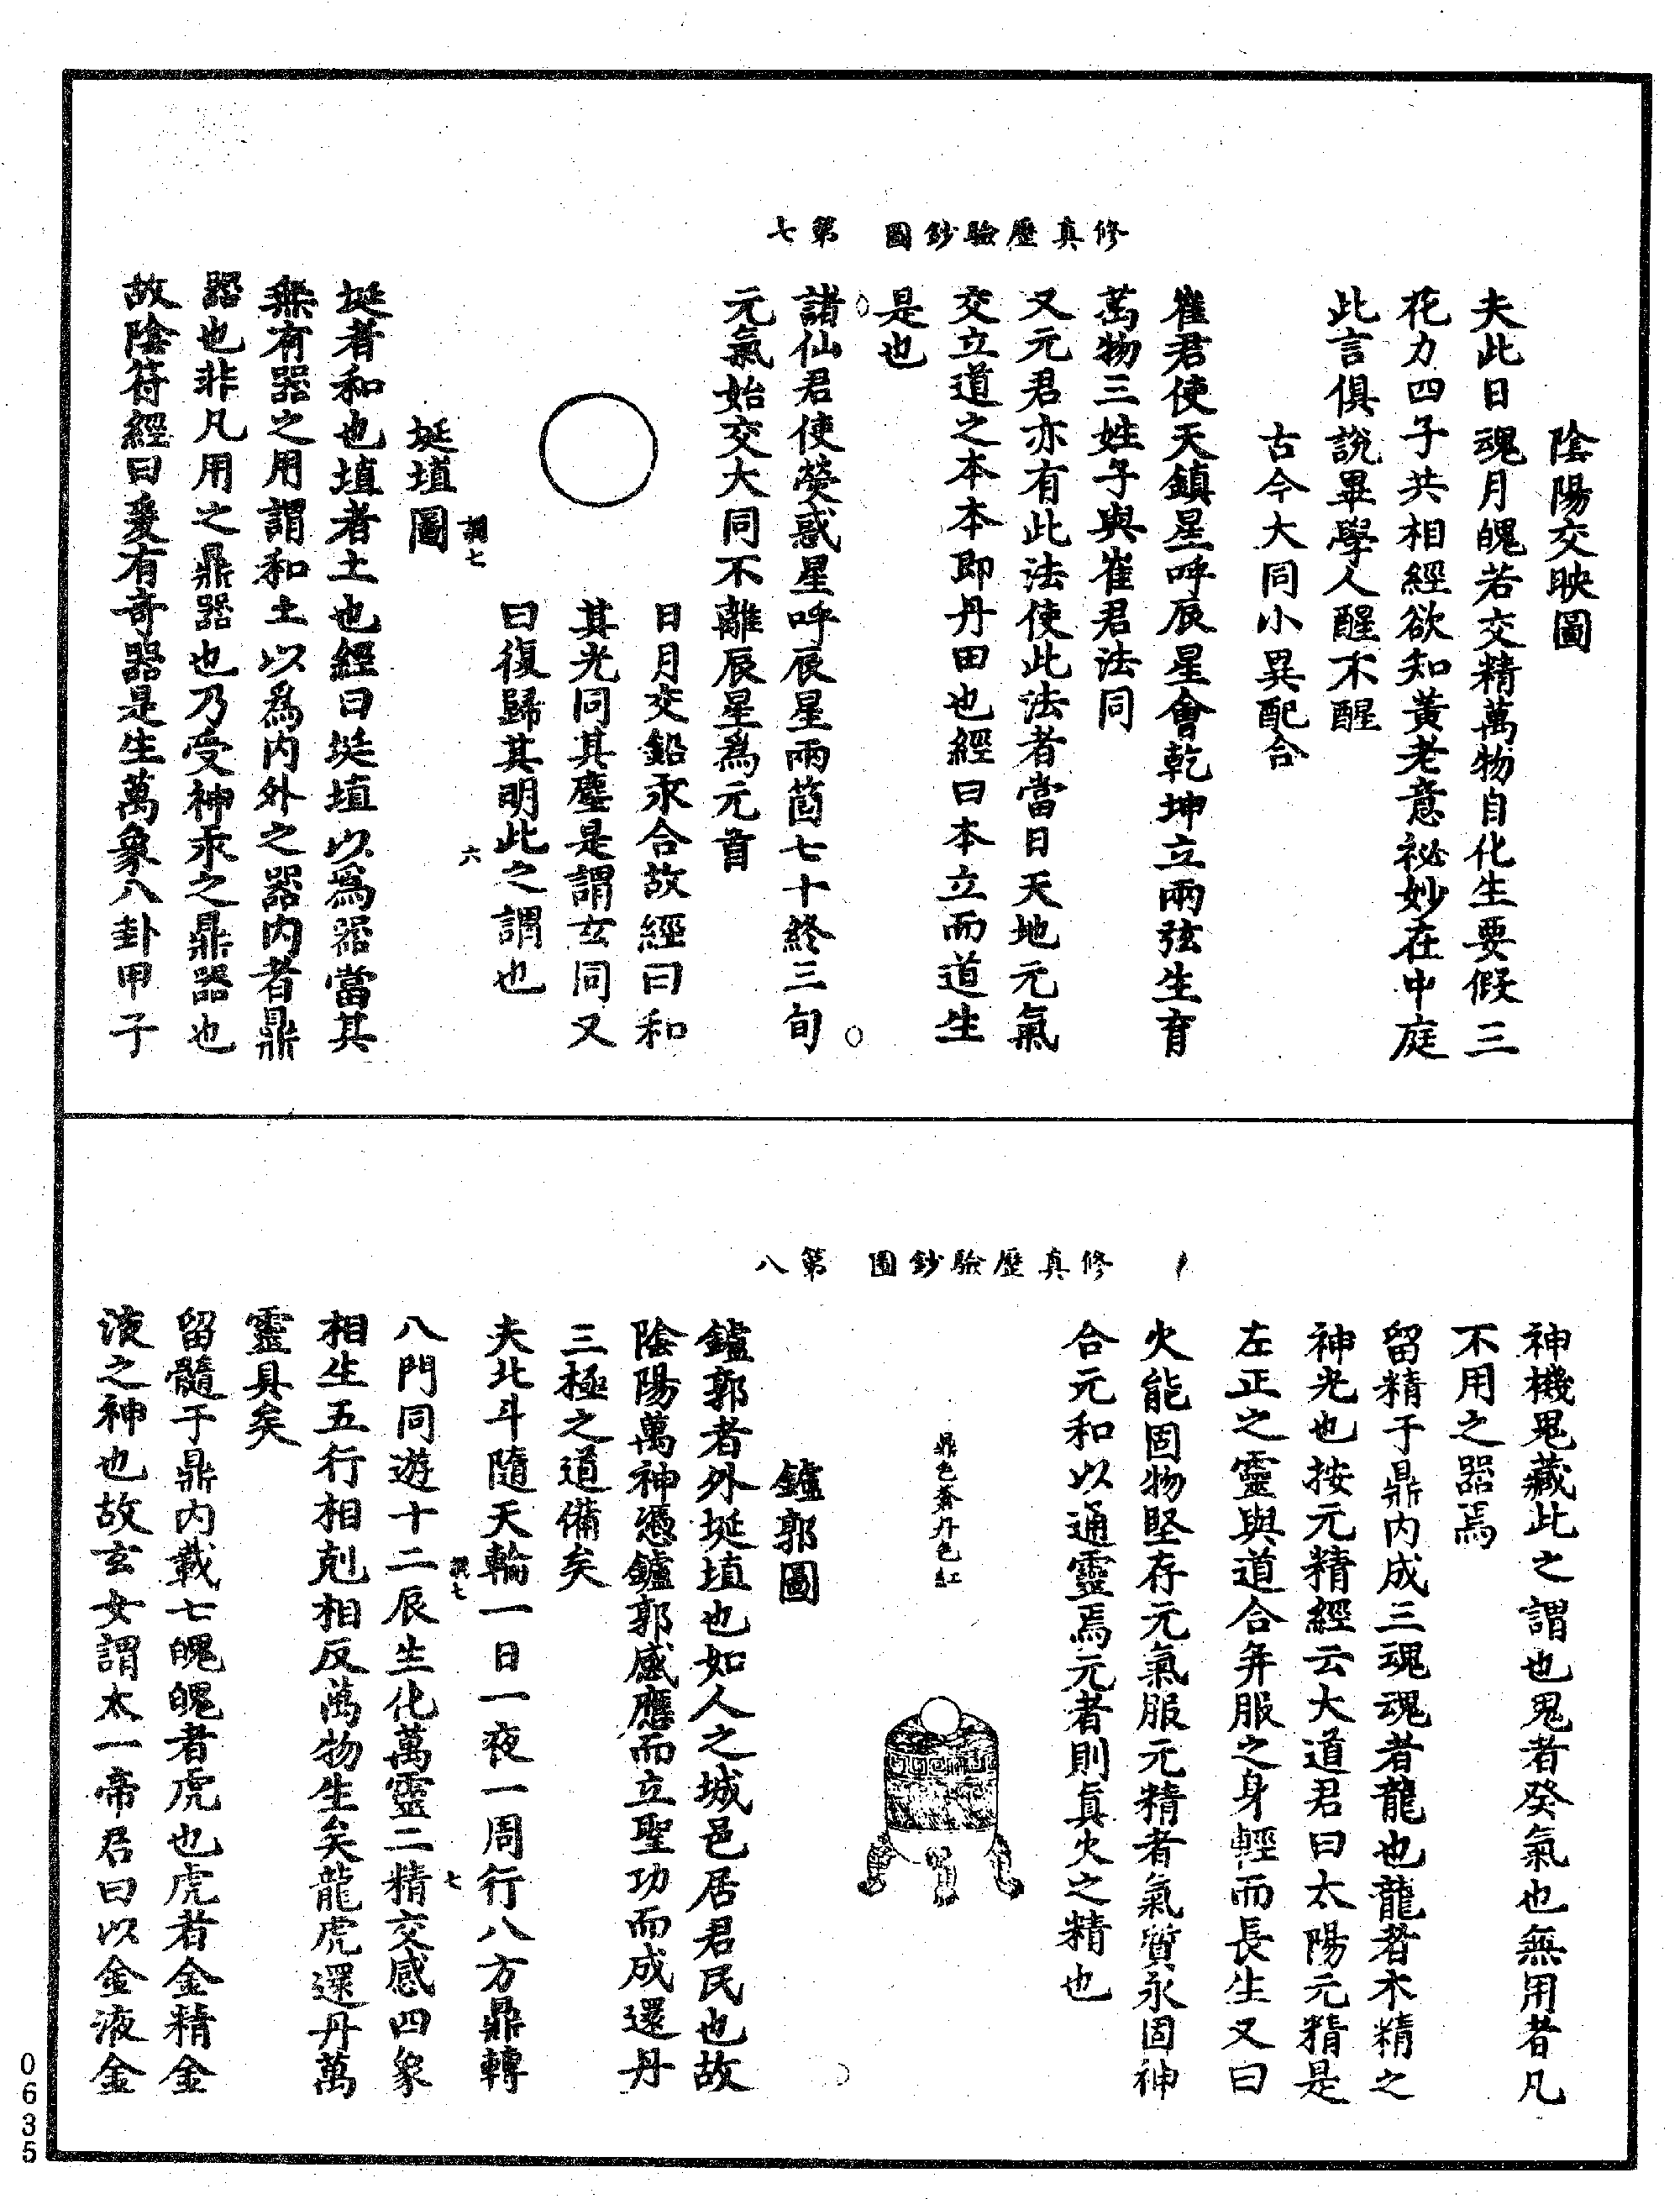 修真歷驗鈔圖　第七
陰陽交映圖
夫此日魂月魄若交精萬物自化生要假三
花力四子共相經欲知黃老意祕妙在中庭
此言俱說畢學人醒不醒
古今大同小異配合
崔君使天鎮星呼辰星會乾坤立兩弦生育
萬物三姓子與崔君法同
又元君亦有此法使此法者當日天地元氣
交立道之本本即丹田也經曰本立而道生
是也
諸仙君使熒惑星呼辰星兩茴七十終三旬
元氣始交大同不離辰星為元首
日月交鉛汞合故經曰和
其光同其塵是謂玄同又
曰復歸其明此之謂也
六
埏埴圖
埏者和也埴者土也經曰埏埴以為器當其
無有器之用謂和土以為內外之器內者鼎
器也非凡用之鼎器也乃受神汞之鼎器也
故陰符經曰爰有奇器是生萬象八卦甲子
修真歷驗鈔圖　第八
神機鬼藏此之謂也鬼者癸氣也無用者凡
不用之器焉
留精于鼎內成三魂魂者龍也龍者木精之
神光也按元精經云大道君曰太陽元精是
左正之靈與道合并服之身輕而長生又曰
火能固物堅存元氣服元精者氣質永固神
合元和以通靈焉元者則真火之精也
鼎色蒼丹色紅
鑪郭圖
鑪郭者外埏埴也如人之城邑居君民也故
陰陽萬神憑鑪郭感應而立聖功而成還丹
三極之道備矣
夫北斗隨天輪一日一夜一周行八方鼎轉
七
八門同遊十二辰生化萬靈二精交感四象
相生五行相剋相反萬物生矣龍虎還丹萬
靈具矣
留髓于鼎內載七魄魄者虎也虎者金精金
液之神也故玄女謂太一帝君曰以金液金
0635